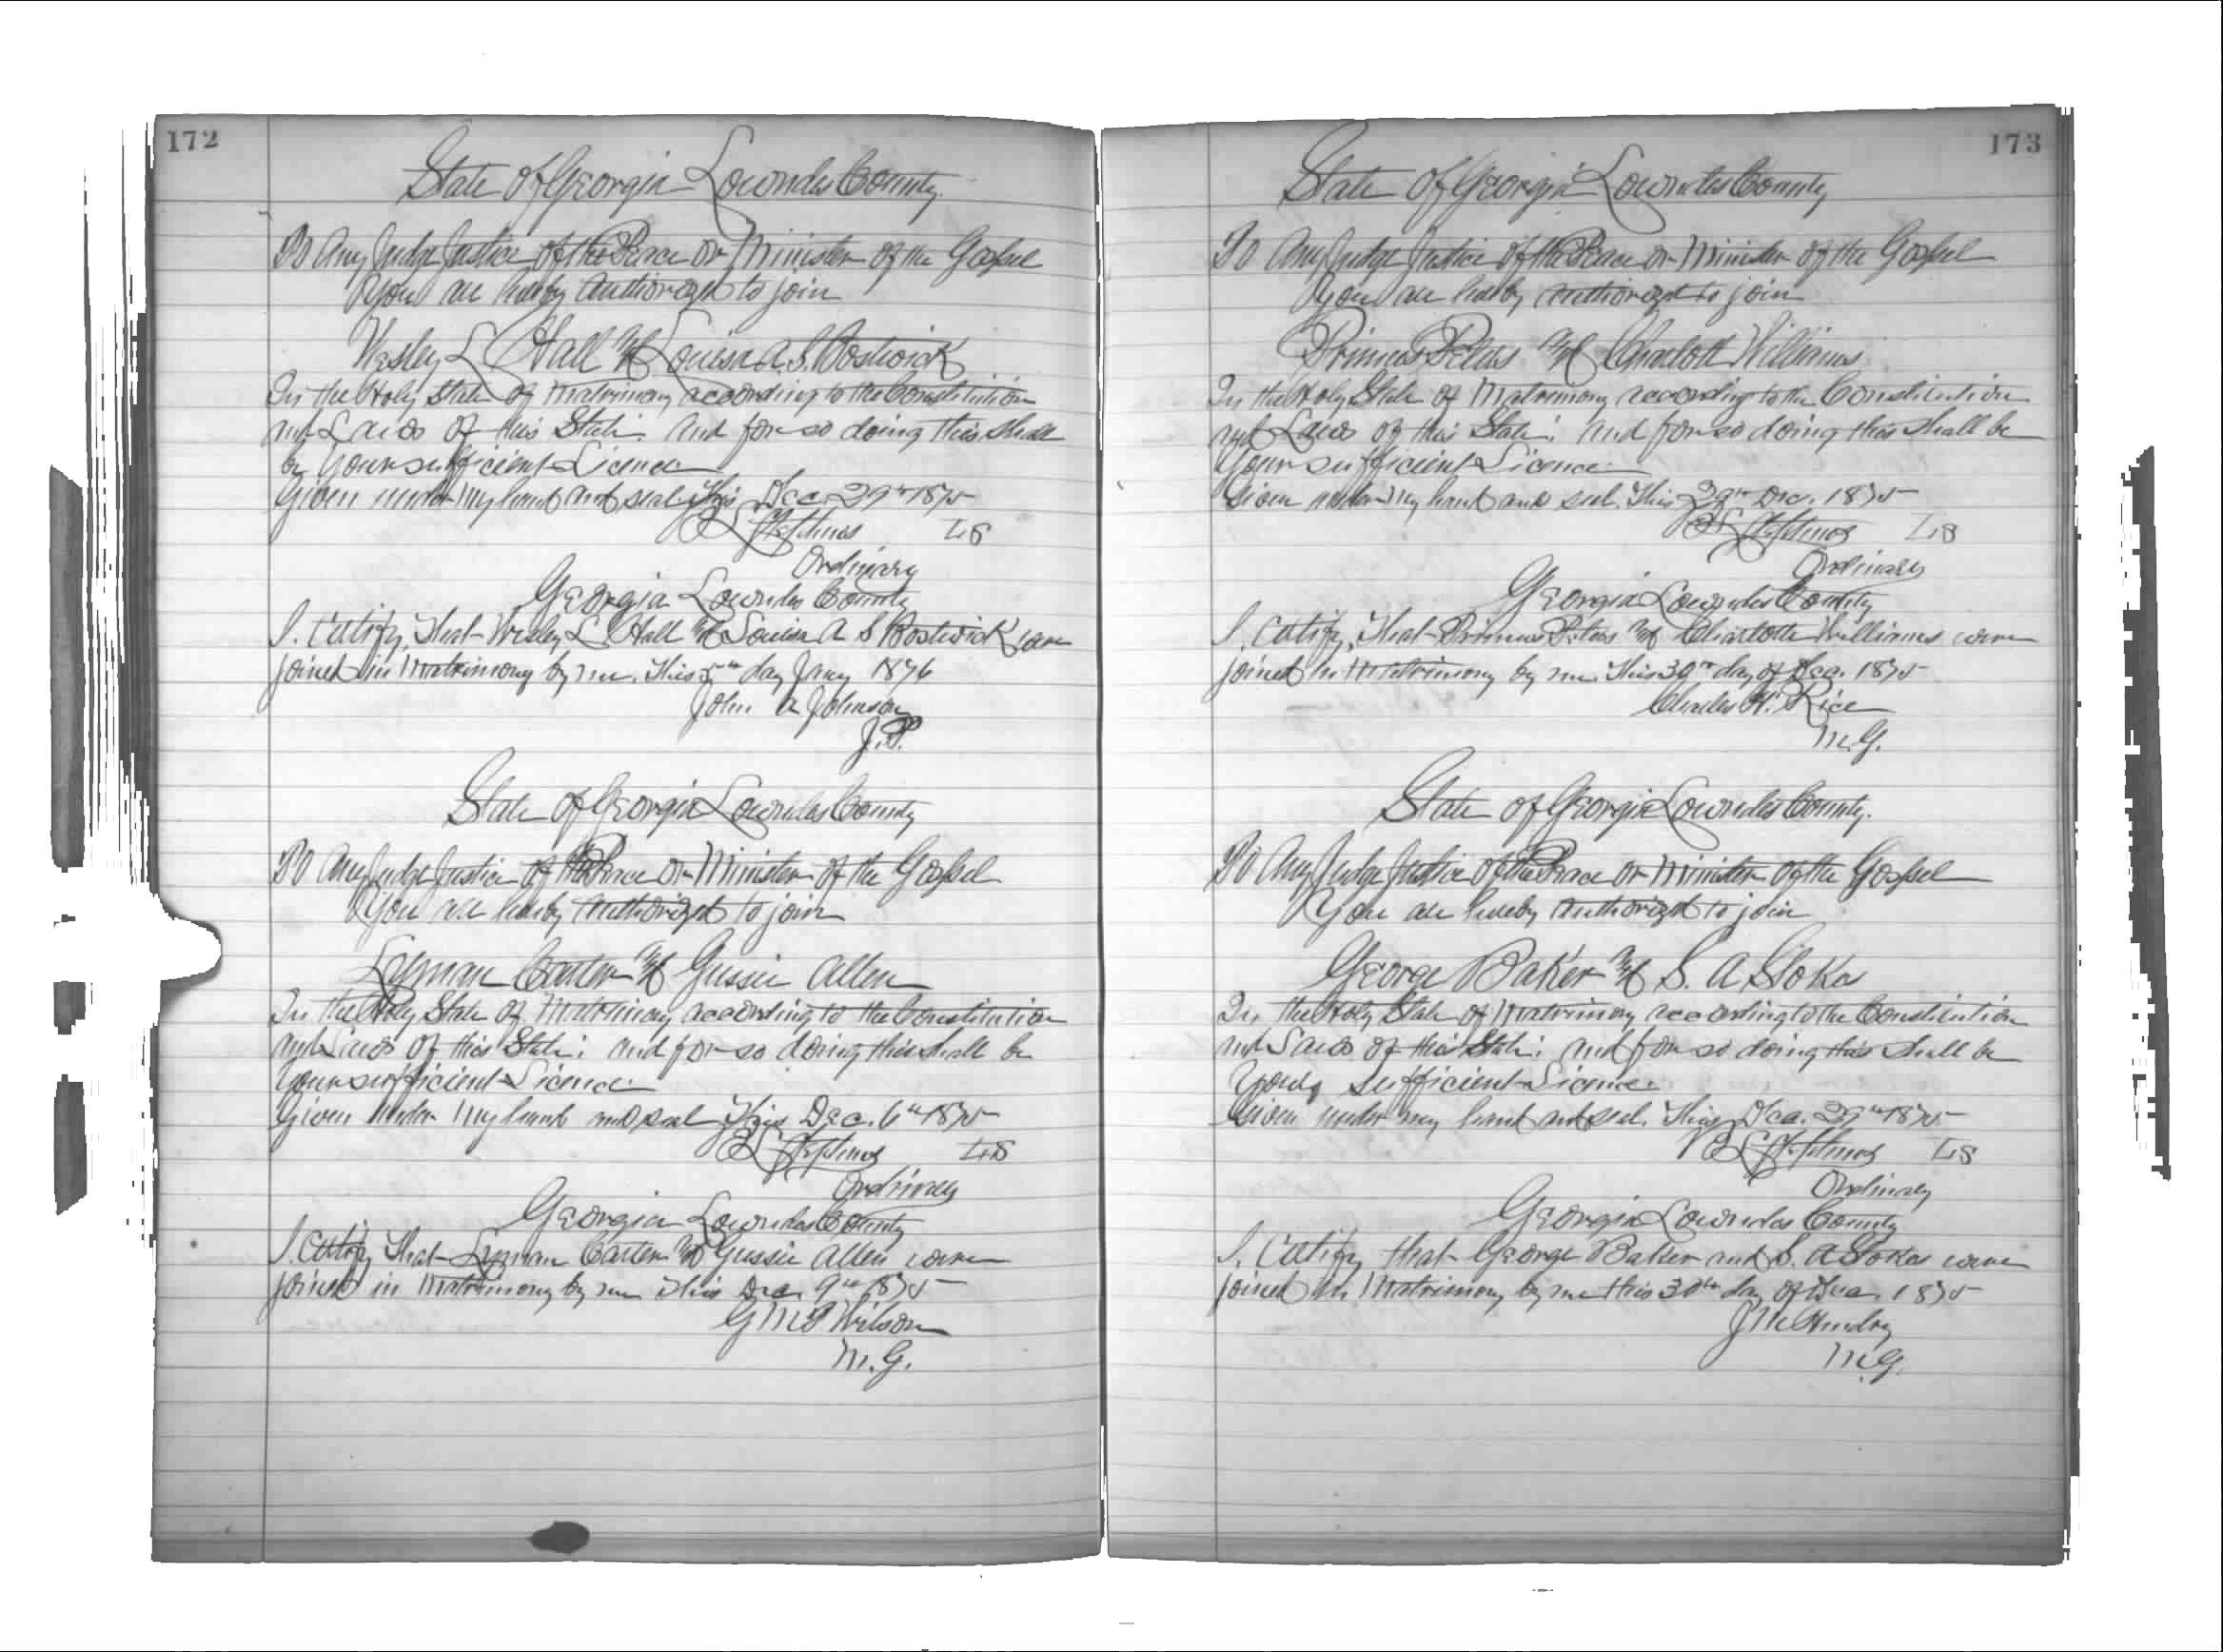 172
State of Georgia Lowndes County.
To Any Judge Justice of the Peace or Minister of the Gospel
You are hereby Authorized to join
Wesley L Hall and Louisa A. S. Bostwick
In the Holy State of Matrimony according to the Constitution
and Laws of this State. And for so doing this shall
be Your sufficient Licence
Given under my hand and seal This Dec. 29th 1875
Ordinary LS
Georgia Lowndes County
I. Certify, That Wesley L Hall and Louisa A S Bostwick were
joined in Matrimony by me. This 5th day Jany 1876
John A Johnson
J.P.
State of Georgia Lowndes County
To Any Judge Justice of the Peace or Minister of the Gospel
You are hereby Authorized to join
Lyman Carter and Gussie Allen
In the Holy State of Matrimony according to the Constitution
and Laws of this State: and for so doing this shall be
Your sufficient Licence.
Given under my hand and seal This Dec. 6th 1875
LS
Ordinary
Georgia Lowndes County
I. Certify That Lyman Carter and Gussie Allen were
joined in Matrimony by me This Dec. 9th 1875
G M T Wilson
M.G.
173
State of Georgia Lowndes County
To Any Judge Justice of the Peace or Minister of the Gospel
You are hereby authorized to join
Primus Peters and Charlott Williams
In the Holy State of Matrimony according to the Constitution
and Laws of this State: and for so doing this shall be
Your sufficient Licence.
Given under my hand and seal. This 29th Dec. 1875
LS
Ordinary
Georgia Lowndes County
I. Certify, That Primus Peters and Charlotte Williams were
joined in Matrimony by me This 30th day of Dec. 1875
Charles H. Rice
M.G.
State of Georgia Lowndes County.
To Any Judge Justice of the Peace or Minister of the Gospel
You are hereby authorized to join
George Baker and S. A Stokes
In the Holy State of Matrimony according to the Constitution
and Laws of this State: and for so doing this shall be
Your sufficient Licence.
Given under my hand and seal. This Dec. 29th 1875
LS
Ordinary
Georgia Lowndes County
I. Certify that George Baker and S. A Stokes were
joined in Matrimony by me this 30th day of Dec. 1875
J M Hendry
M.G.